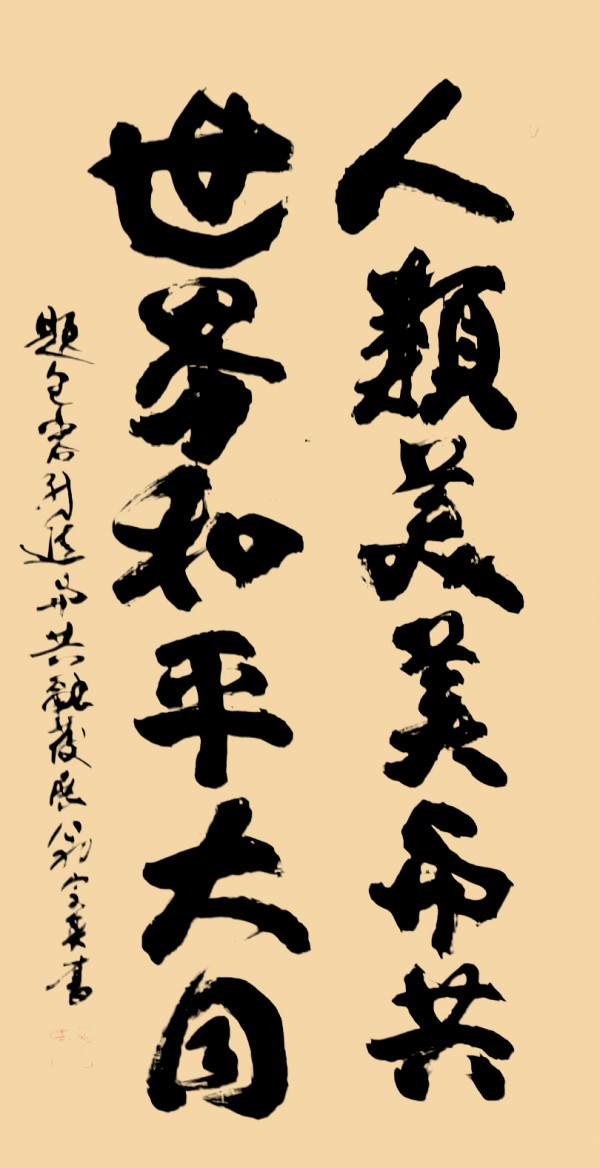 人類美美與共
世界和平大同
題包容進與共融發展翁英書